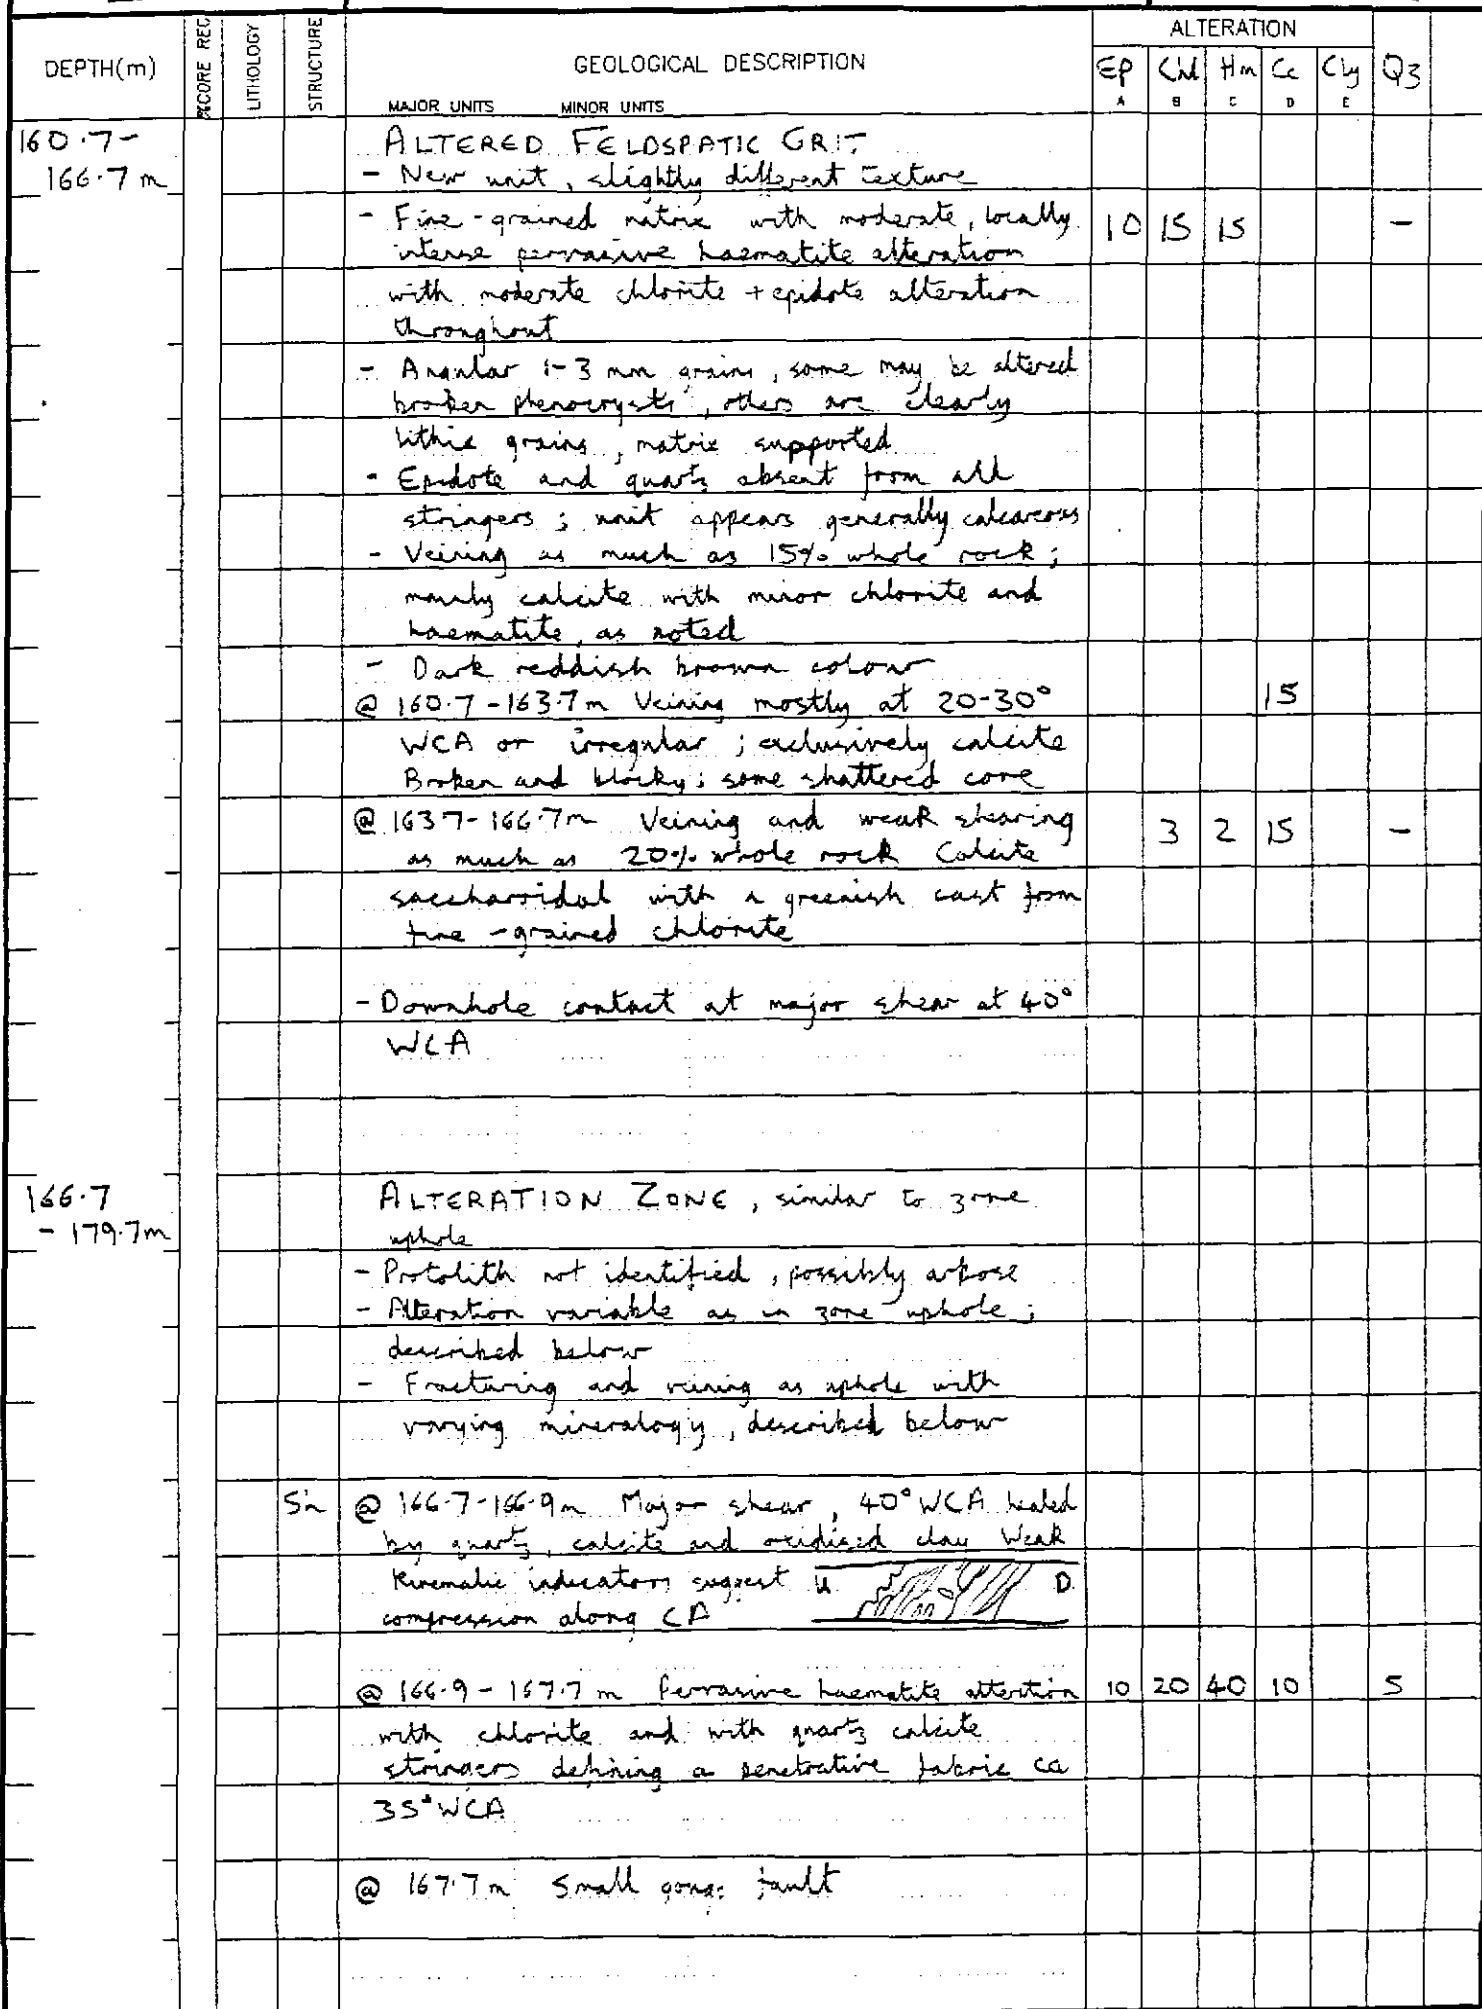 DEPTH(m)
%CORE REC
LITHOLOGY
STRUCTURE
GEOLOGICAL DESCRIPTION
MAJOR UNITS MINOR UNITS
ALTERATION
Ep Chl Hm Cc Cly Qz
A B C D E
160.7-
166.7 m
ALTERED FELDSPATIC GRIT
- New unit, slightly different texture
- Fine-grained matrix with moderate, locally 10 15 15 -
intense pervasive haematite alteration
with moderate chlorite + epidote alteration
throughout
- Angular 1-3 mm grains, some may be altered
broken phenocrysts, others are clearly
lithic grains, matrix supported
- Epidote and quartz absent from all
stringers; unit appears generally calcareous
- Veining as much as 15% whole rock;
mainly calcite with minor chlorite and
haematite, as noted
- Dark reddish brown colour
@ 160.7-163.7m Veining mostly at 20-30° 15
WCA or irregular; exclusively calcite
Broken and blocky; some shattered core
@ 163.7-166.7m Veining and weak shearing 3 2 15 -
as much as 20% whole rock Calcite
saccharoidal with a greenish cast from
fine-grained chlorite
- Downhole contact at major shear at 40°
WCA
166.7
- 179.7m
ALTERATION ZONE, similar to zone
uphole
- Protolith not identified, possibly arkose
- Alteration variable as in zone uphole;
described below
- Fracturing and veining as uphole with
varying mineralogy, described below
Sh @ 166.7-166.9m Major shear, 40° WCA healed
by quartz, calcite and oxidised clay Weak
kinematic indicators suggest U D
compression along CA
@ 166.9-167.7m Pervasive haematite alteration 10 20 40 10 5
with chlorite and with quartz calcite
stringers defining a penetrative fabric ca
35° WCA
@ 167.7m Small gouge fault